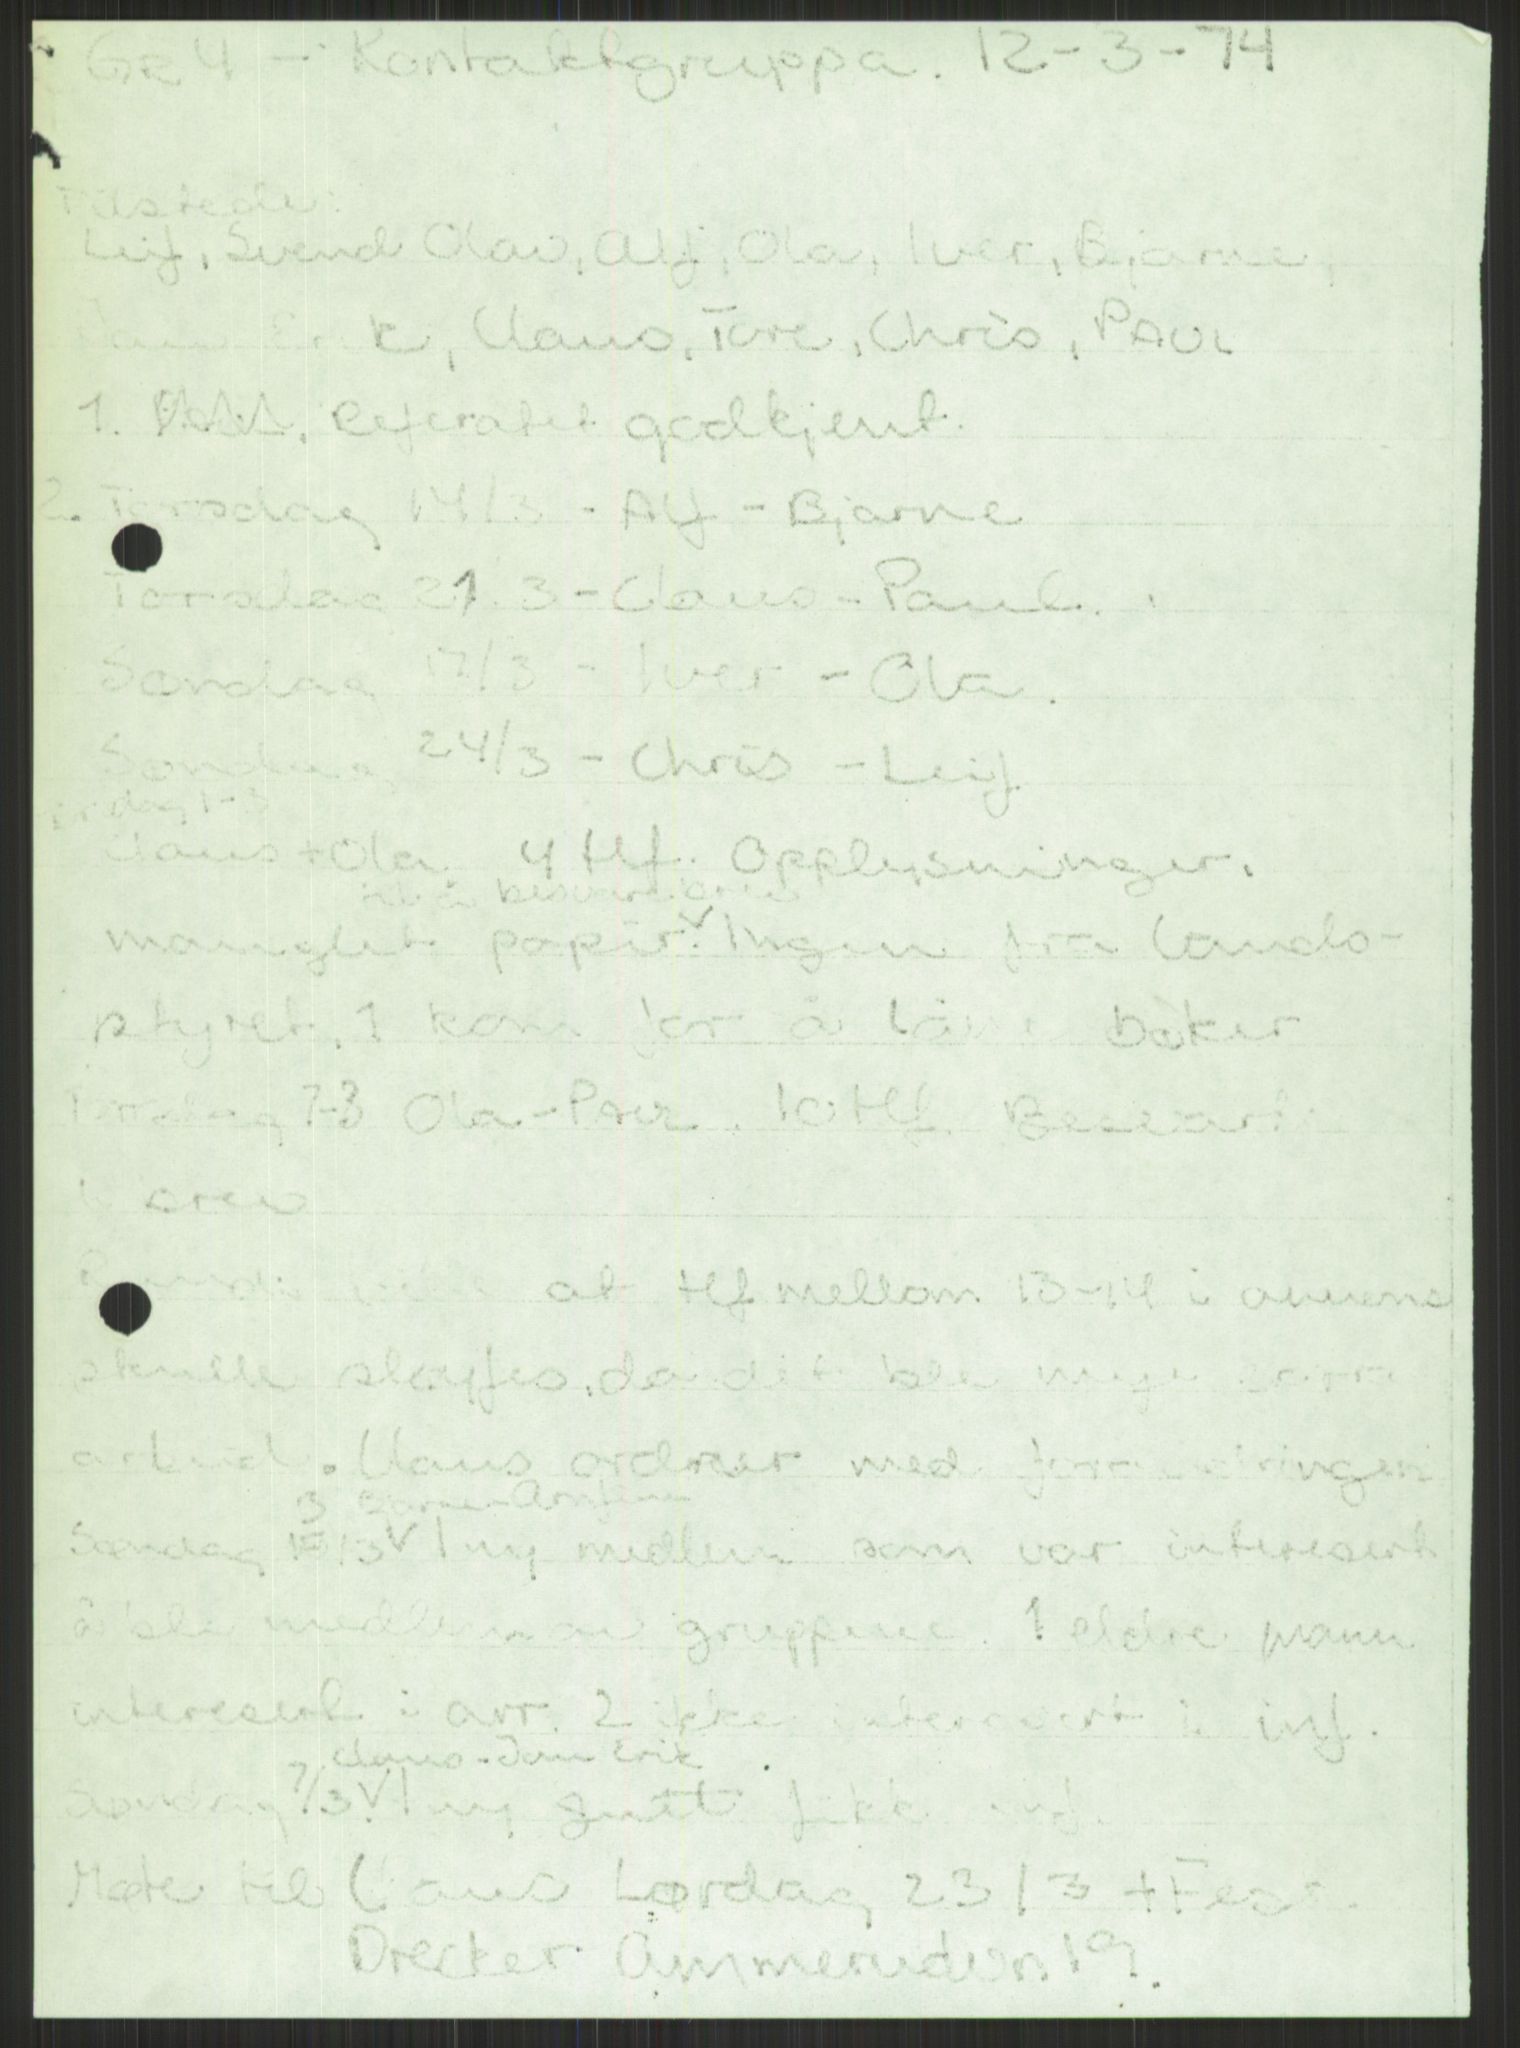 GR 4 - Kontaktgruppa. 12-3-74
Tilstede:
Leif, Svend Olav, Alf, Ola, Iver, Bjarne,
k, Claus, Tore, Chris, PAUL
1. Referatet godkjent.
2. Torsdag 14/3 - Alf - Bjarne
Torsdag 21.3 - Claus - Paul.
Søndag 17/3 - Iver - Ola.
Søndag 24/3 - Chris - Leif
dag 1-3
Claus + Ola 4 tlf. Opplysninger,
til å besvare brev
manglet papir. Ingen fra Lands-
styret, 1 kom for å låne bøker
Torsdag 7-3 Ola - PAUL. 10 tlf. Besvart
brev
at tlf mellom 13-14 i
skulle sløyfes, da det ble mye
arbeid. Claus ordner med
3 Bjarne
Søndag /3 1 ny medlem som var interesert
å ble medlem av gruppene. 1 eldre mann
interesert i arr. 2 ikke interesert i inf.
Claus - Jan Erik
Søndag /3 1 ny gutt fikk inf.
Møte til Claus Lørdag 23/3 + Fest
Drecker Ammerudvn 19.